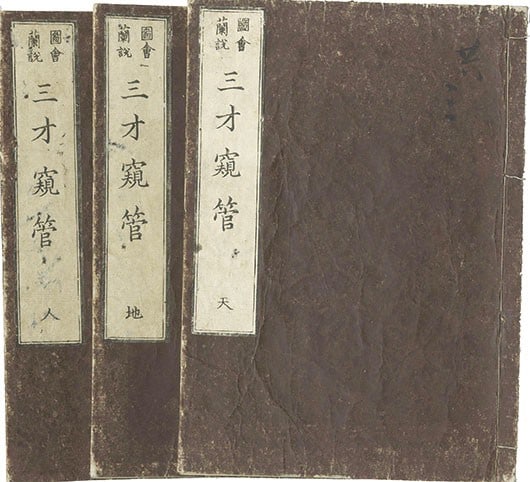 圖會
蘭說
三才窺管
天
圖會
蘭說
三才窺管
地
圖會
蘭說
三才窺管
人